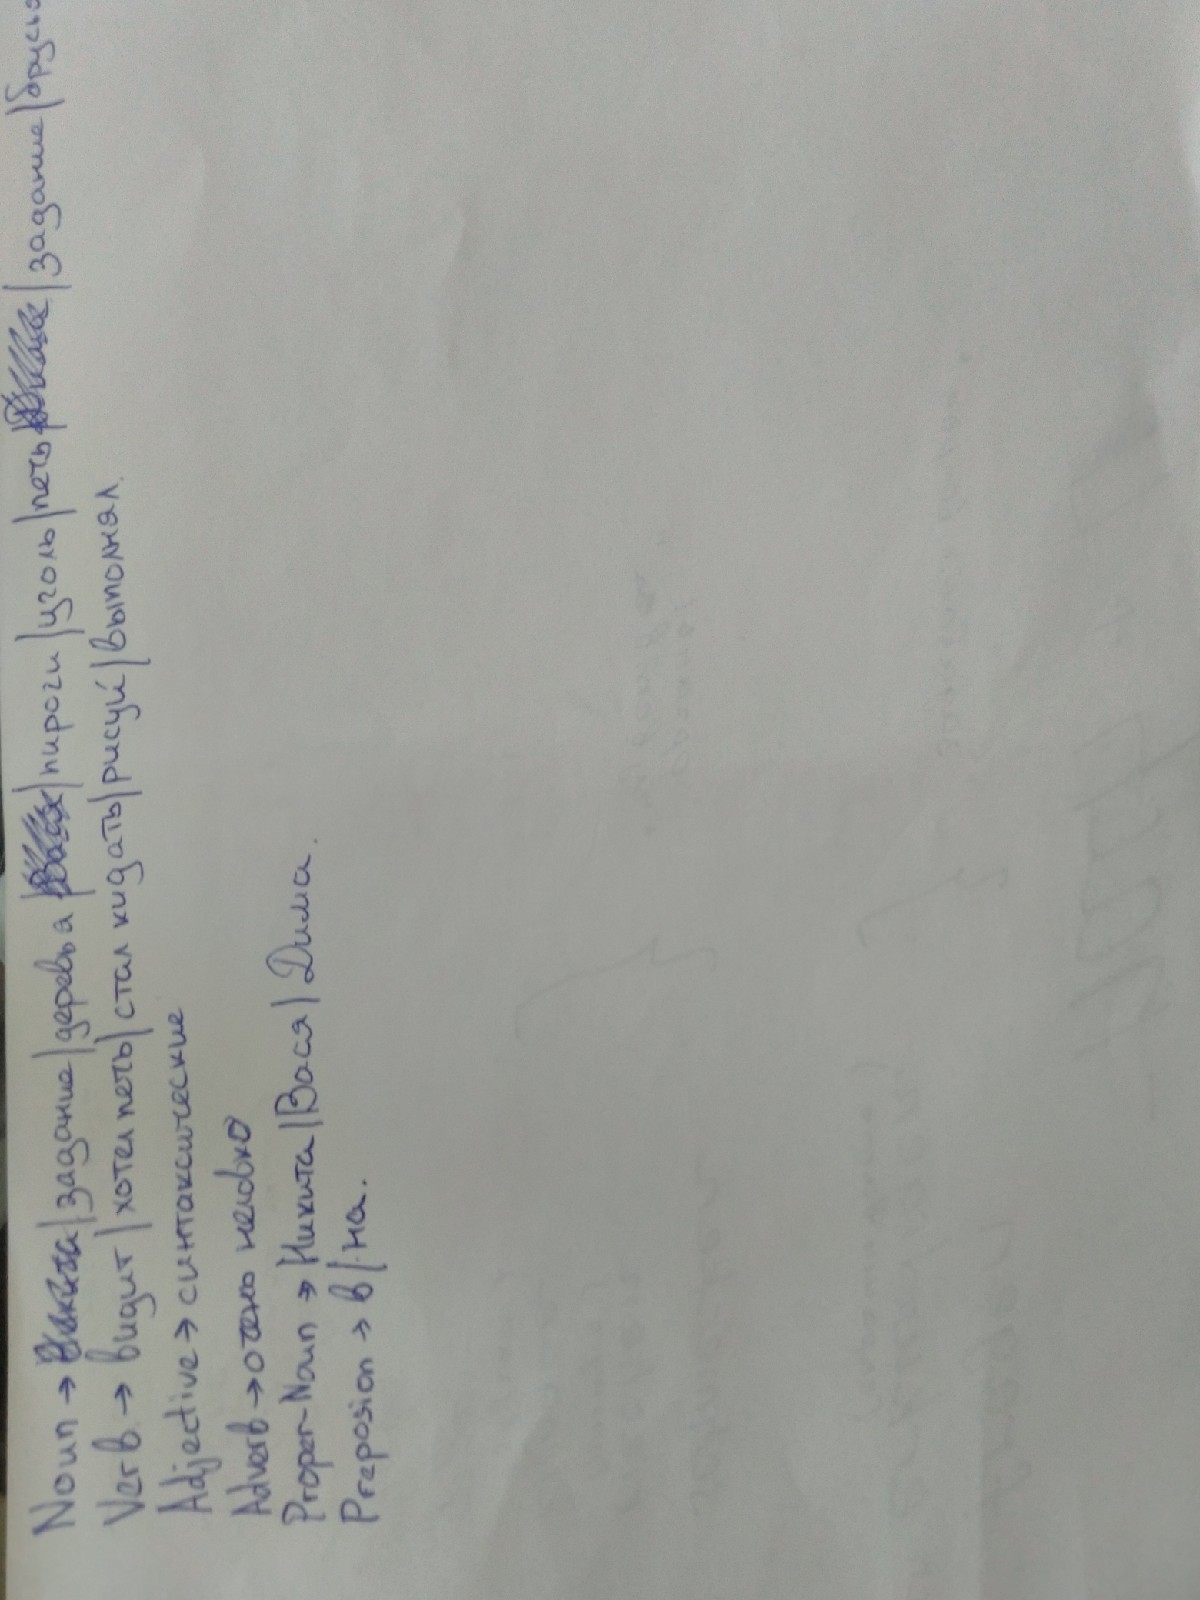 Noun → задание | деревья | пироги | уголь | печь | задание | брусья
Verb → видит | хотел печь | стал кидать | рисуй | выполнял.
Adjective → синтаксические
Adverb → очень неловко
Proper-Noun → Никита | Вася | Дима.
Preposion → в | на.